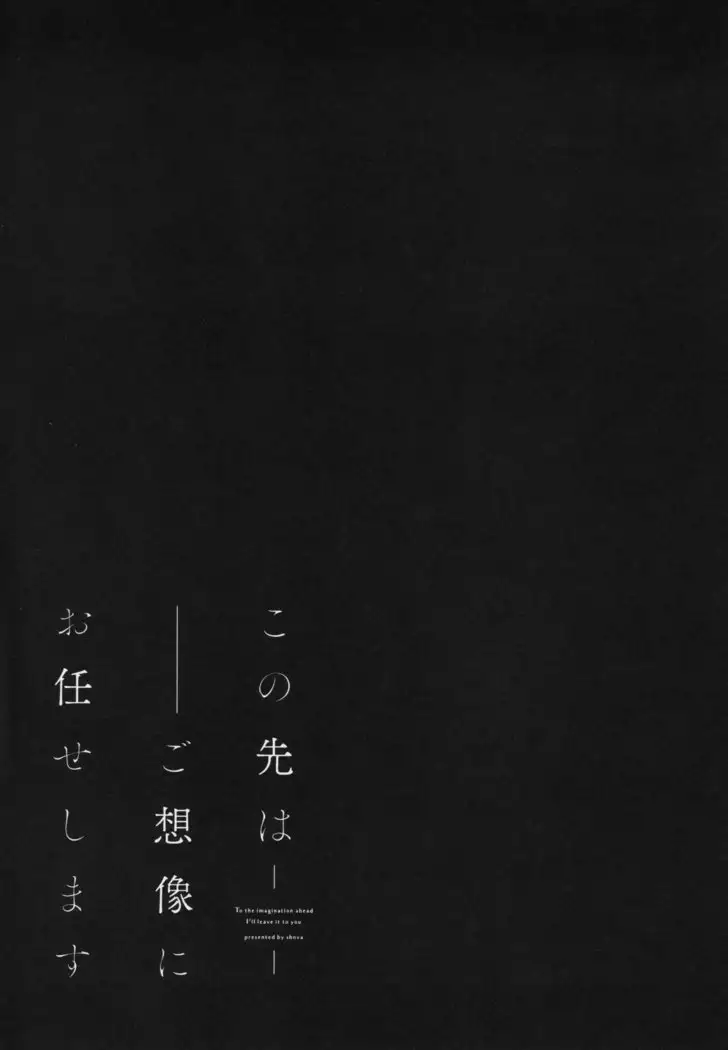 この先は――
――ご想像に
お任せします
To the imagination ahead
I'll leave it to you
presented by shova